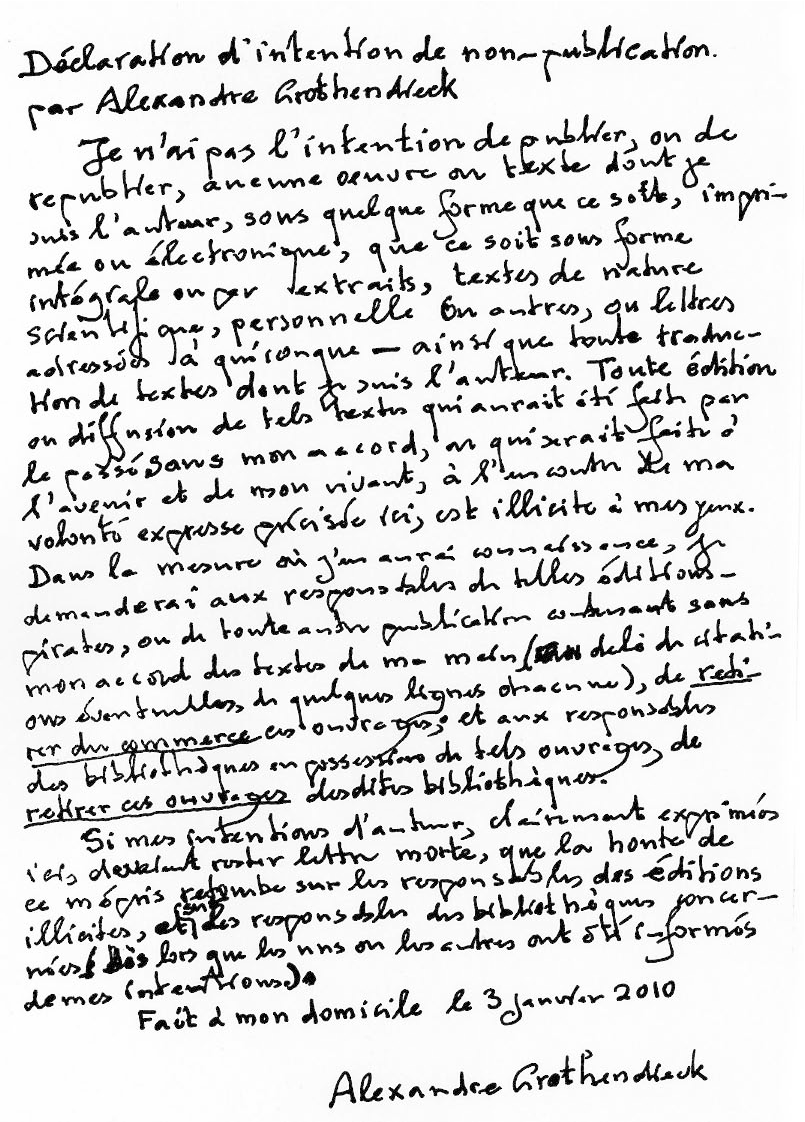 Déclaration d'intention de non-publication.
par Alexandre Grothendieck
Je n'ai pas l'intention de publier, ou de
republier, aucune oeuvre ou texte dont je
suis l'auteur, sous quelque forme que ce soit, impri-
mée ou électronique, que ce soit sous forme
intégrale ou par extraits, textes de nature
scientifique, personnelle ou autres, ou lettres
adressées à quiconque — ainsi que toute traduc-
tion de textes dont je suis l'auteur. Toute édition
ou diffusion de tels textes qui aurait été faite par
le passé sans mon accord, ou qui serait faite à
l'avenir et de mon vivant, à l'encontre de ma
volonté expresse précisée ici, est illicite à mes yeux.
Dans la mesure où j'en aurai connaissance, je
demanderai aux responsables de telles éditions-
pirates, ou de toute autre publication contenant sans
mon accord des textes de ma main (au delà de citati-
ons éventuelles de quelques lignes chacune), de reti-
rer du commerce ces ouvrages; et aux responsables
des bibliothèques en possession de tels ouvrages, de
retirer ces ouvrages desdites bibliothèques.
Si mes intentions d'auteur, clairement exprimées
ici, devaient rester lettre morte, que la honte de
ce mépris retombe sur les responsables des éditions
illicites, et sur les responsables des bibliothèques concer-
nées (dès lors que les uns ou les autres ont été informés
de mes intentions).
Fait à mon domicile le 3 janvier 2010
Alexandre Grothendieck